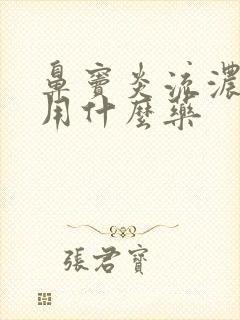 鼻窦炎流濃
用什麼藥
張君寶